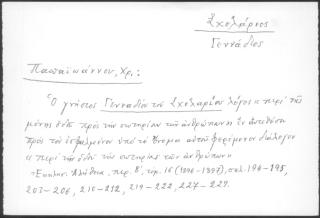 Σχολάριος
Γεννάδιος
Παπαϊωάννου, Χρ.:
Ὁ γνήσιος Γενναδίου τοῦ Σχολαρίου λόγος «περὶ τῆς
μόνης ὁδοῦ πρὸς τὴν σωτηρίαν τῶν ἀνθρώπων» ἐν ἀντιθέσει
πρὸς τὸν ἐσφαλμένως ὑπὸ τὸ ὄνομα αὐτοῦ φερόμενον διάλογον
«περὶ τῆς ὁδοῦ τῆς σωτηρίας τῶν ἀνθρώπων»
Ἐκκλησ. Ἀλήθεια, περ. Β΄, τόμ. 16 (1896-1897), σελ. 194-195,
203-206, 210-212, 219-222, 227-229.